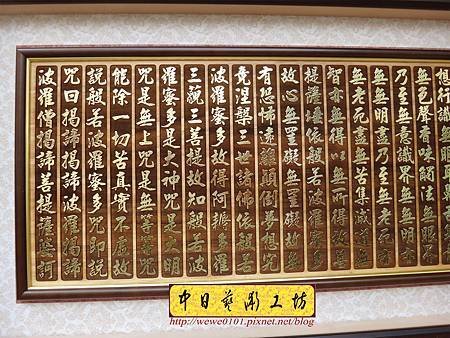 想行識無眼耳鼻舌身意
無色聲香味觸法無眼界
乃至無意識界無無明亦
無無明盡乃至無老死亦
無老死盡無苦集滅道無
智亦無得以無所得故菩
提薩埵依般若波羅蜜多
故心無罣礙無罣礙故無
有恐怖遠離顛倒夢想究
竟涅槃三世諸佛依般若
波羅蜜多故得阿耨多羅
三藐三菩提故知般若波
羅蜜多是大神咒是大明
咒是無上咒是無等等咒
能除一切苦真實不虛故
說般若波羅蜜多咒即說
咒曰揭諦揭諦波羅揭諦
波羅僧揭諦菩提薩婆訶
中日藝彫工坊
http://wewe0101.pixnet.net/blog